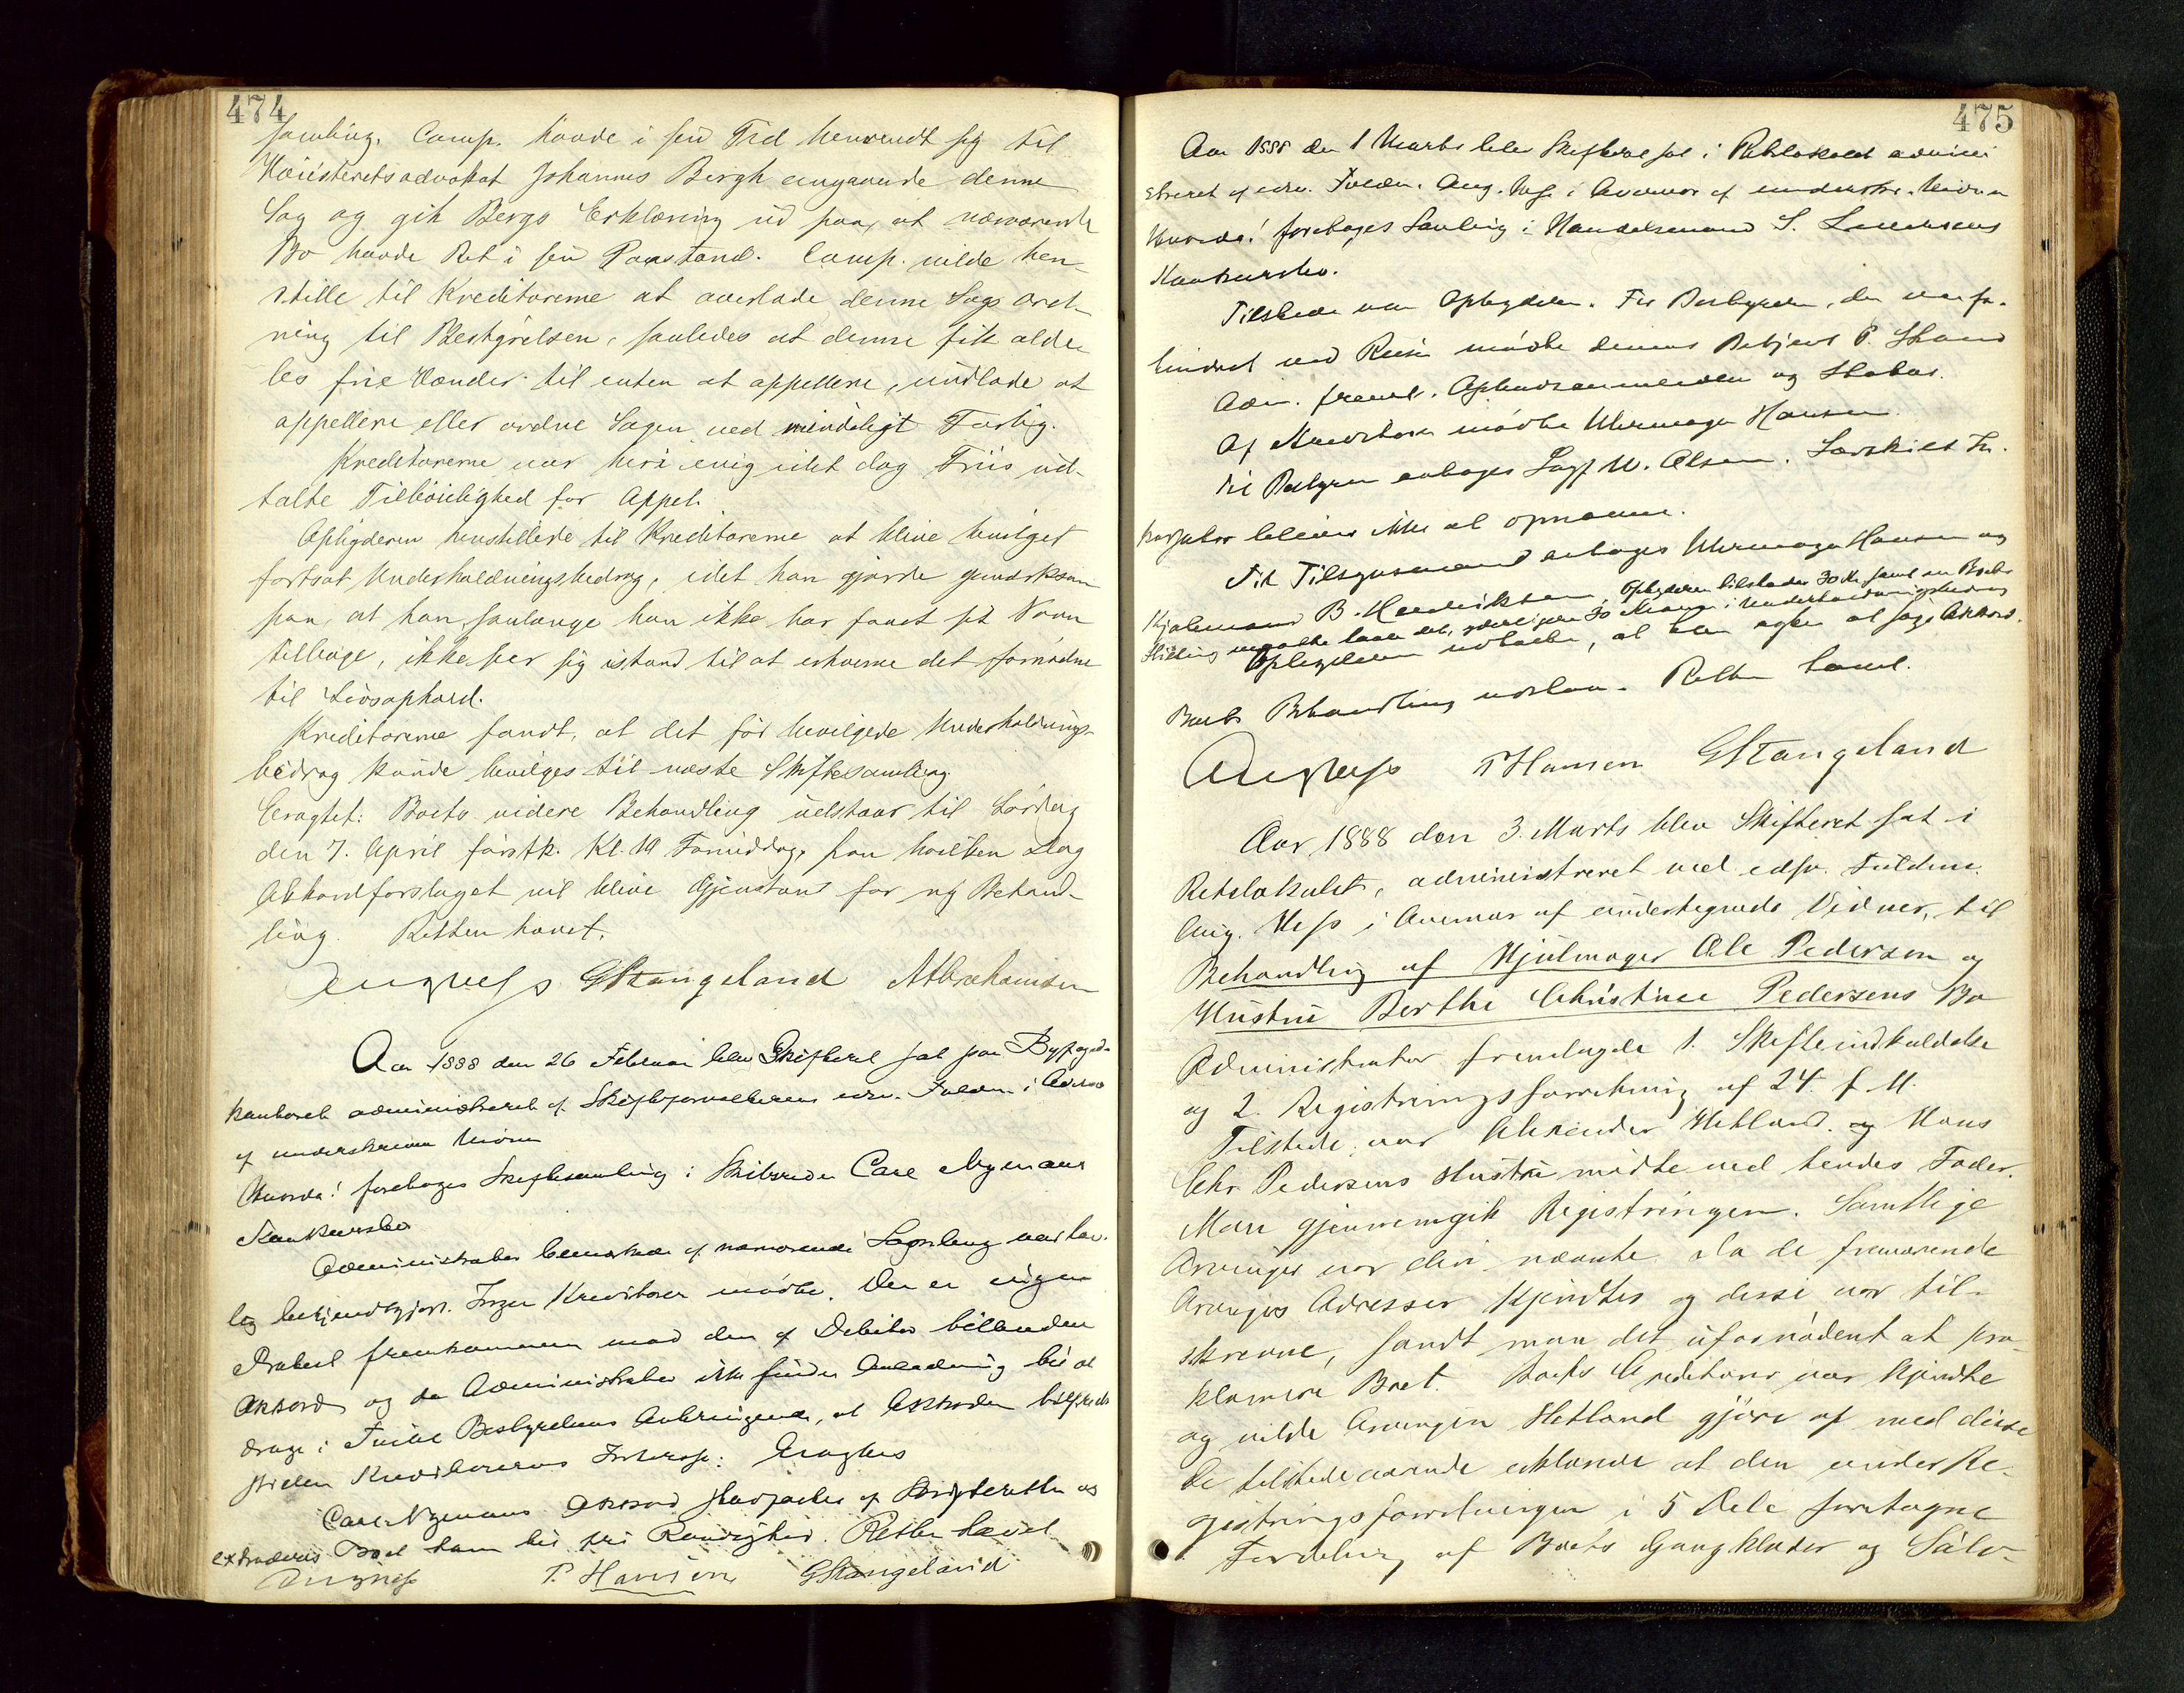 474
samling. Comp. havde i sin Tid henvendt sig til
Høiesteretsadvokat Johannes Bergh angaaende denne
Sag og gik Berghs Erklæring ud paa, at nærværende
Bo havde Ret i sin Paastand. Comp. vilde hen-
stille til Kreditorerne at overlade denne Sags Ord-
ning til Bestyrelsen, saaledes at denne fik alde-
les frie Hænder til enten at appellere, undlade at
appellere eller ordne Sagen ved mindeligt Forlig.
Kreditorerne var heri enig idet dog Friis ud-
talte Tilbøielighed for Appel.
Opbyderen henstillede til Kreditorerne at blive bevilget
fortsat Underholdningsbidrag, idet han gjorde opmærksom
paa, at han, saalænge han ikke har faaet sit Navn
tilbage, ikke ser sig istand til at erhverve det fornødne
til Livsophold.
Kreditorerne fandt, at det før bevilgede Underholdnings-
bidrag kunde bevilges til næste Skiftesamling.
Eragtet: Boets videre Behandling udstaar til Lørdag
den 7. April førstk. Kl. 10 Formiddag, paa hvilken Dag
Akkordforslaget vil blive Gjenstand for ny Behand-
ling. Retten hævet.
Aug Hess GStangeland Abrahamsen
Aar 1888 den 26 Februar blev Skifteret sat paa Byfogd-
kontoret administreret af Skifteforvalterens edsv. Fuldm. i Overvær
af underskrevne Vidner
Hvorda! foretages Skiftesamling i Skibsreder Carl Nymans
Konkursbo
Administrator bemærkede af nærværende Samling var lov-
lig bekjendtgjort. Ingen Kreditorer mødte. Der er ingen
Protest fremkommen mod den af Debitor tilbudne
Akkord og da Administrator ikke finder Anledning til at
drage i Tvivl Bestyrelsens Anbringende, at Akkorden tilfreds-
stiller Kreditorernes Interesse: Eragtes
Carl Nymans Akkord stadfæstes af Skifteretten og
extraderes Boet ham til fri Raadighed. Retten hævet
Aug Hess P. Hansen GStangeland
475
Aar 1888 den 1 Marts blev Skifteret sat i Retslokalet admini
streret af edsv. Fuldm. Aug. Hess i Overvær af underskr. Vidner
Hvorda! foretages Samling i Handelsmand S. Lauritsens
Konkursbo.
Tilstede var Opbyderen. For Bestyreren, der var for-
hindret ved Reise mødte dennes Betjent P. Strand
Adm. freml. Opbudsanmeldelse og Status.
Af Kreditorer mødte Uhrmager Hansen
til Bestyrer antages Sagf. W. Olsen. Særskilt In-
kassator blev ikke at opnævne.
Til Tilsynsmænd antages Uhrmager Hansen og
Kjøbmand B. Hendriksen, Opbyderen tilstodes 30 Kr samt om Boets
Stilling maatte taale det, yderligere 30 Kroner i Underholdningsbidrag
Opbyderen udtalte, at han agter at søge Akkord.
Boets Behandling udstaar. Retten hævet.
Aug Hess PHansen GStangeland
Aar 1888 den 3. Marts blev Skifteret sat i
Retslokalet, administreret ved edsv. Fuldm.
Aug. Hess i Overvær af undertegnede Vidner, til
Behandling af Hjulmager Ole Pedersen og
Hustru Berthe Christine Pedersens Bo
Administrator fremlagde 1. Skifteindkaldelse
og 2. Registreringsforretning af 24. f. M.
Tilstede var Alexander Hetland og Hans
Chr. Pedersens Hustru mødte ved hendes Fader.
Man gjennemgik Registreringen. Samtlige
Arvinger var deri nævnte. Da de fraværende
Arvinges Adresser kjendtes og disse var til-
skrevne, fandt man det ufornødent at pro-
klamere Boet. Boets Kreditorer var kjendte
og vilde Arvingen Hetland gjøre op med disse
De tilstedeværende erklærede at den under Re-
gistreringsforretningen i 5 Dele foretagne
Fordeling af Boets Gangklæder og Sølv-